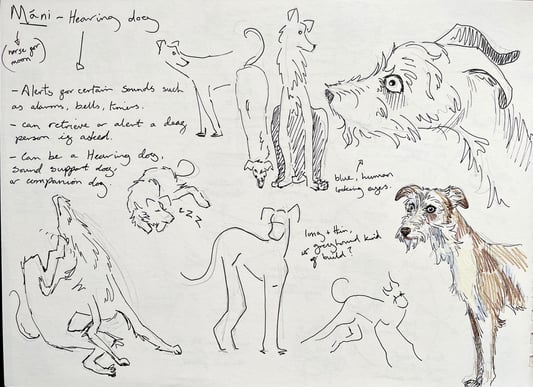 Máni - Hearing dog
(norse for
moon)
- Alerts for certain sounds such
as alarms, bells, timers.
- can retrieve or alert a deaf
person if asked.
- Can be a Hearing dog,
sound support dog,
or companion dog
zzz
blue, human
looking eyes.
long + thin,
greyhound kind
of build?